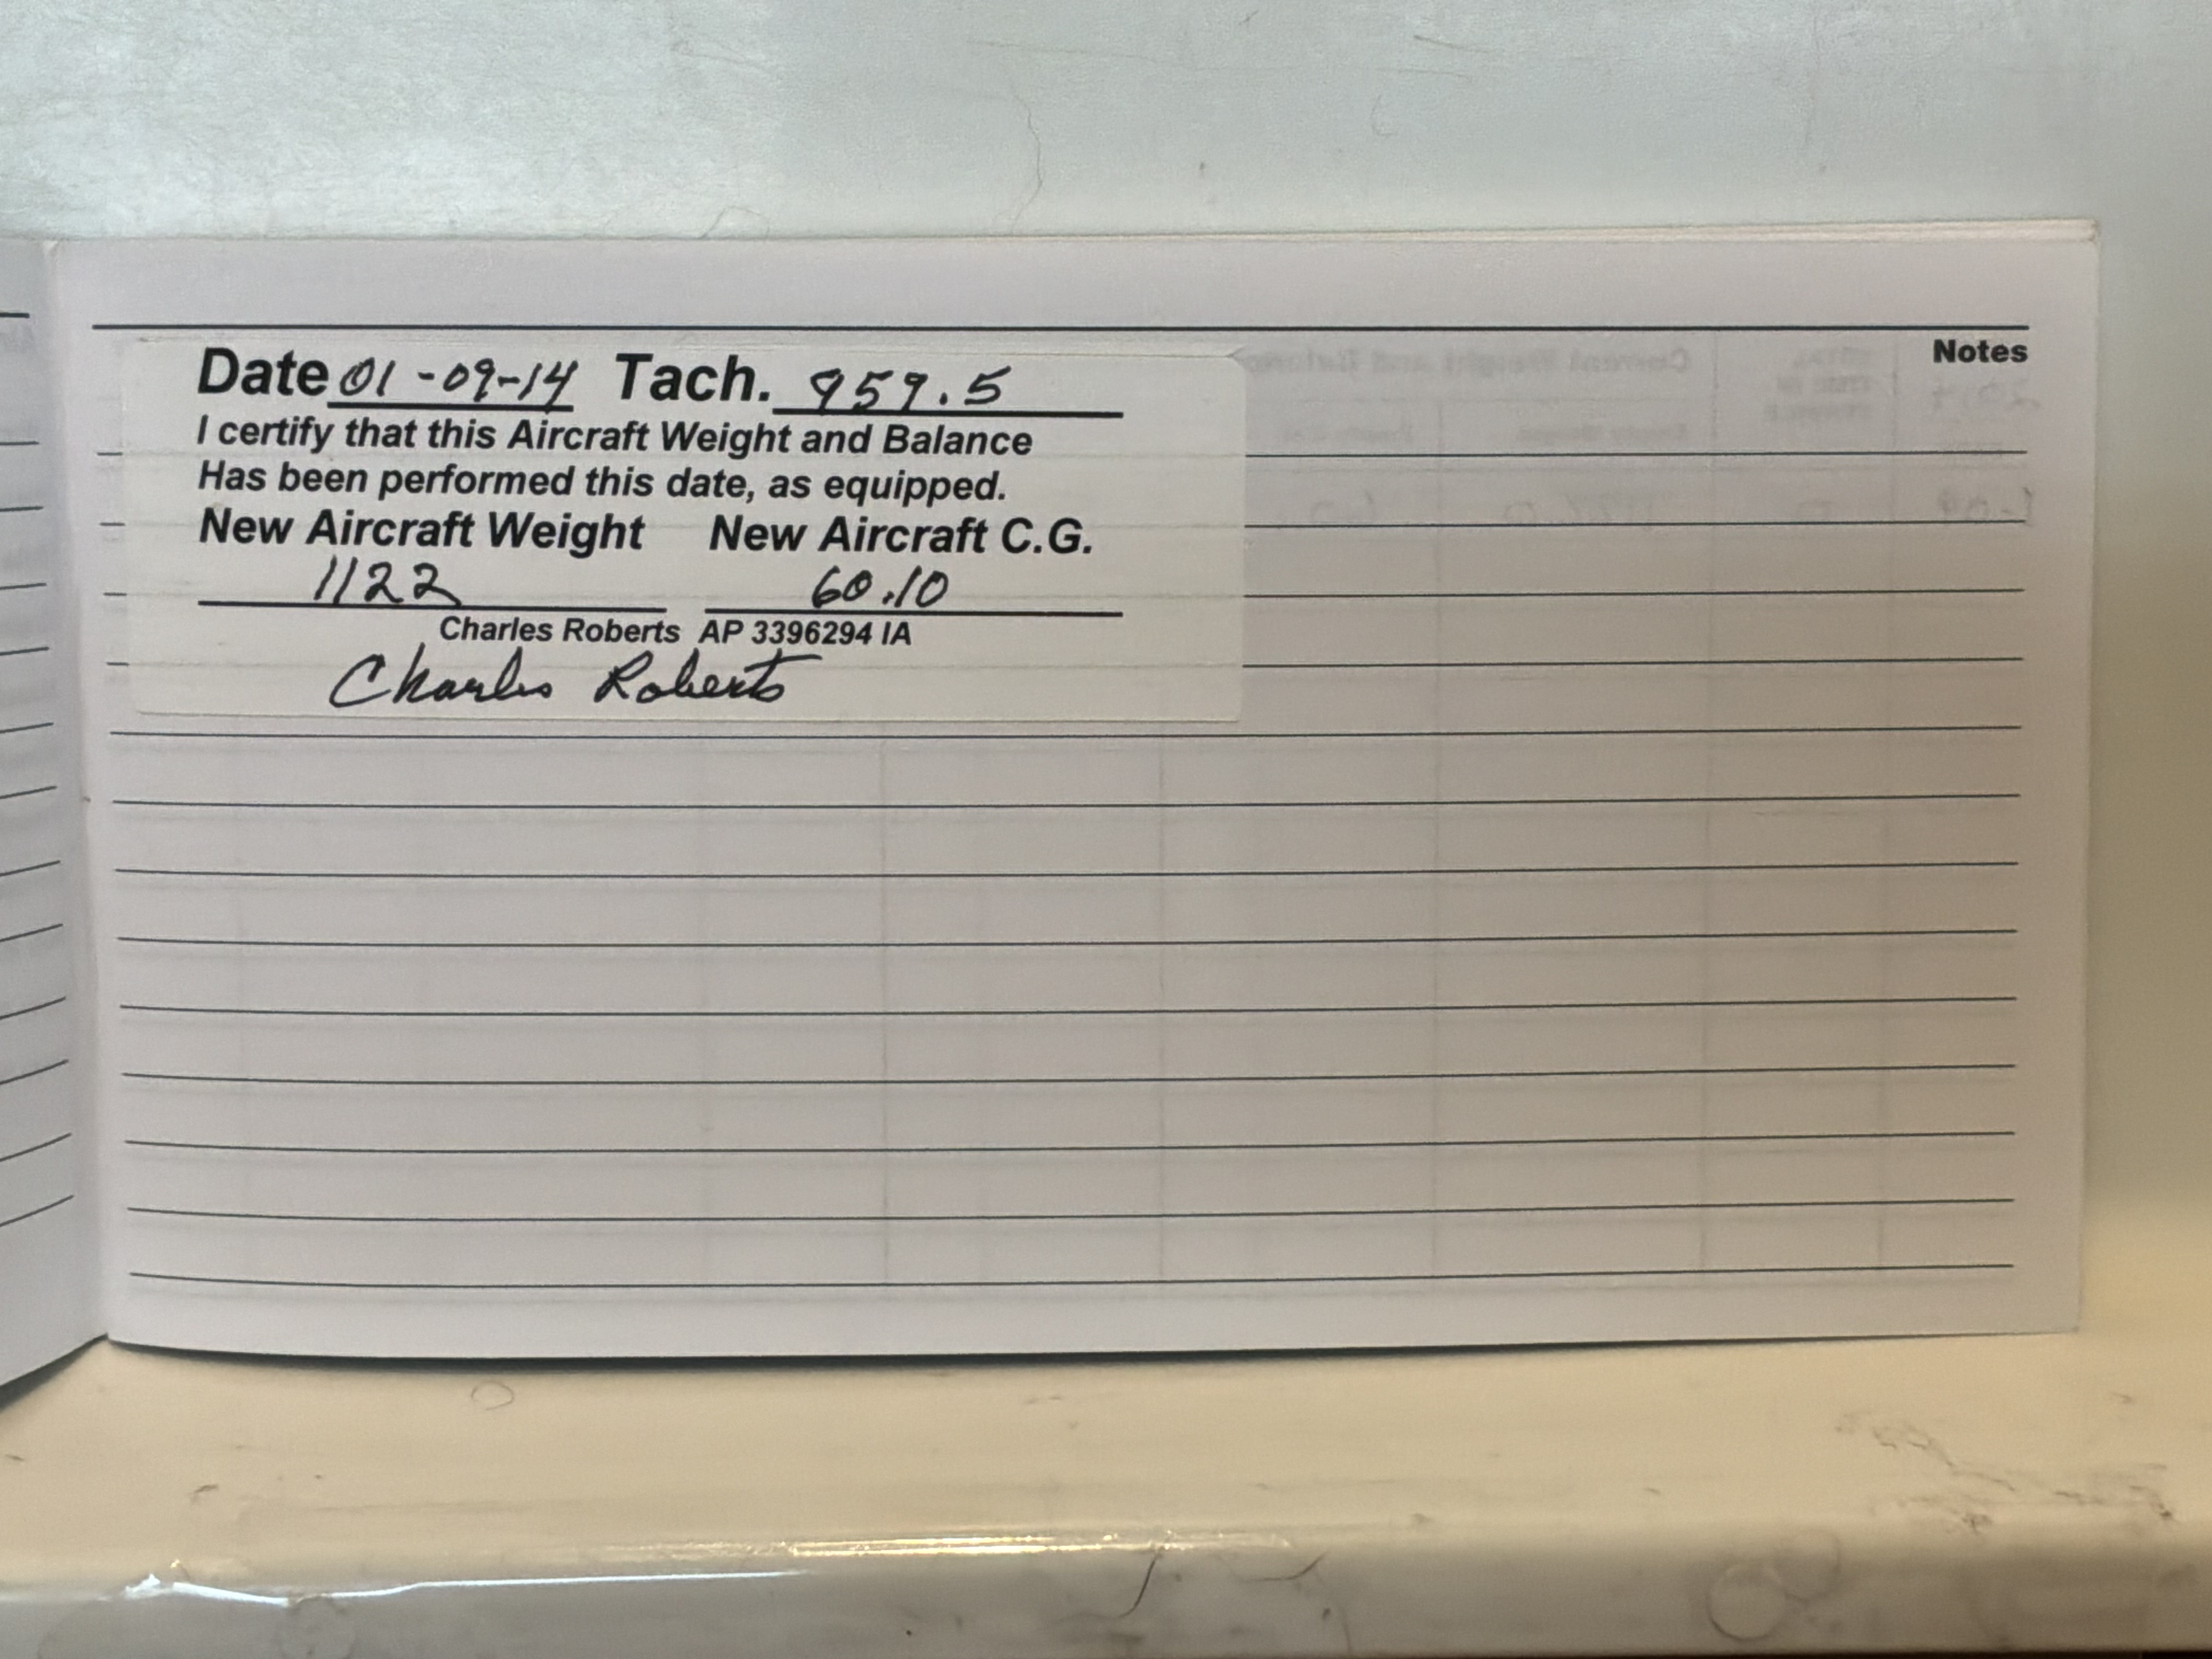 Notes
Date 01-09-14 Tach. 959.5
I certify that this Aircraft Weight and Balance
Has been performed this date, as equipped.
New Aircraft Weight New Aircraft C.G.
1122 60.10
Charles Roberts AP 3396294 IA
Charles Roberts